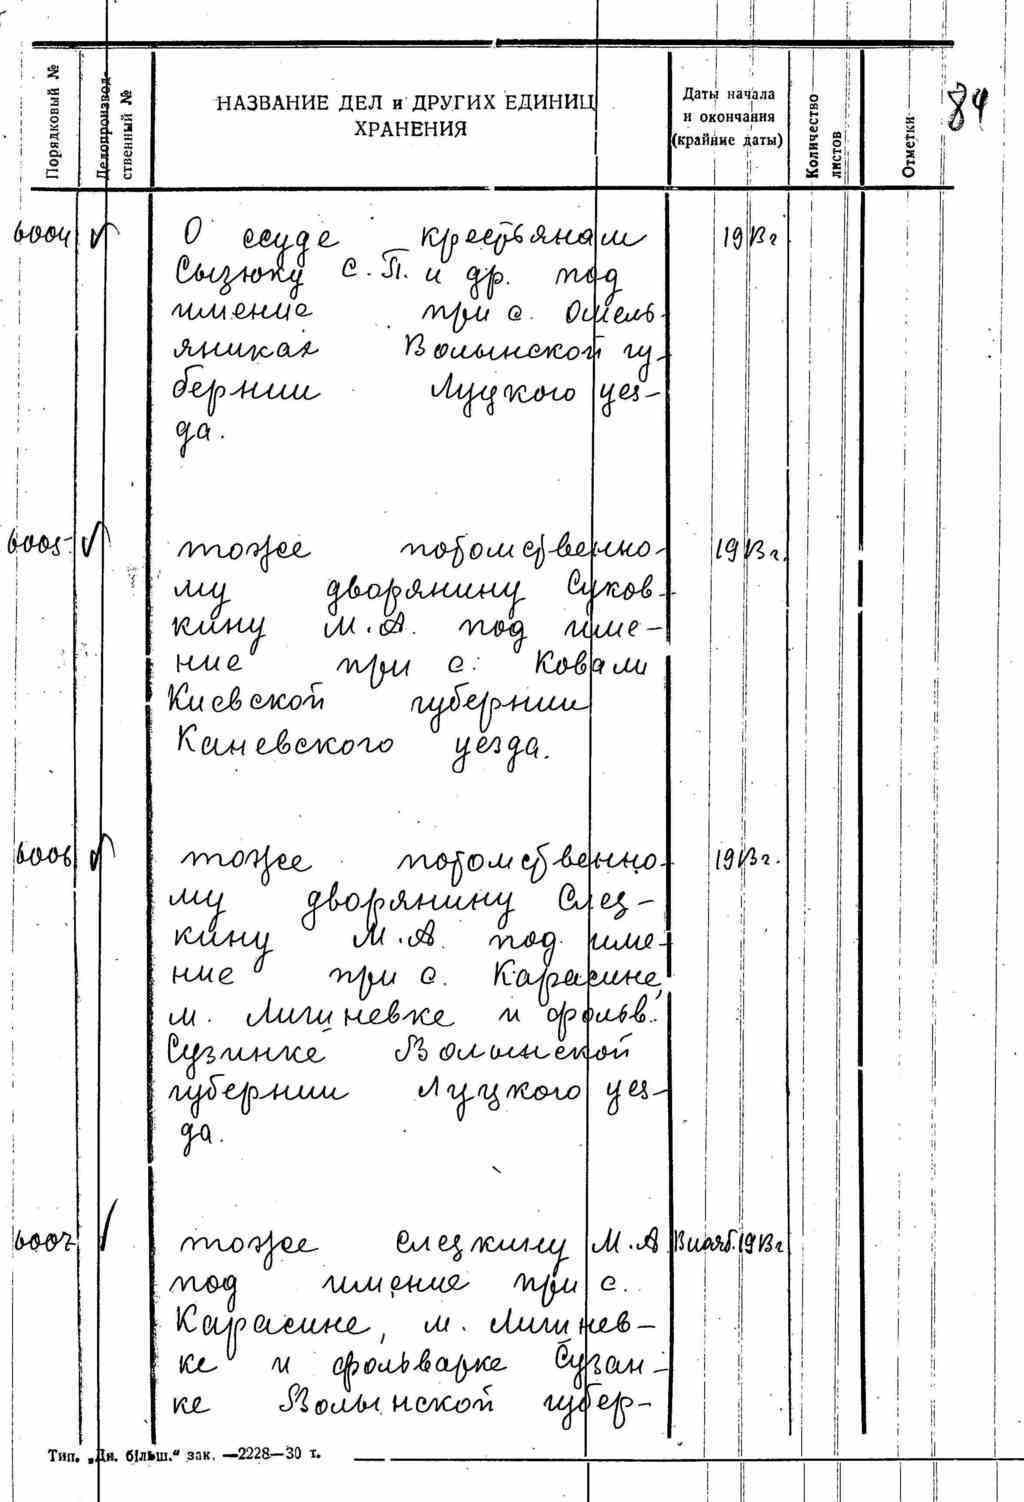 Порядковый №
Делопроизвод-
ственный №
НАЗВАНИЕ ДЕЛ и ДРУГИХ ЕДИНИЦ
ХРАНЕНИЯ
Даты начала
и окончания
(крайние даты)
Количество
листов
Отметки
84
6004 О ссуде крестьянам 1913 г
Сызюку С.П. и др. под
имение при с. Омель-
яниках Волынской гу-
бернии Луцкого уез-
да.
6005 тоже потомственно- 1913 г.
му дворянину Суков-
кину М.А. под име-
ние при с. Ковали
Киевской губернии
Каневского уезда.
6006 тоже потомственно- 1913 г.
му дворянину Слез-
кину М.А. под име-
ние при с. Карасине,
м. Лигиневке и фольв.
Сузинке Волынской
губернии Луцкого уез-
да.
6007 тоже Слезкину М.А 1913 г
под имение при с.
Карасине, м. Лигинев-
ке и фольварке Сузан-
ке Волынской губер-
Тип. „Дн. більш.“ зак. —2228—30 т.